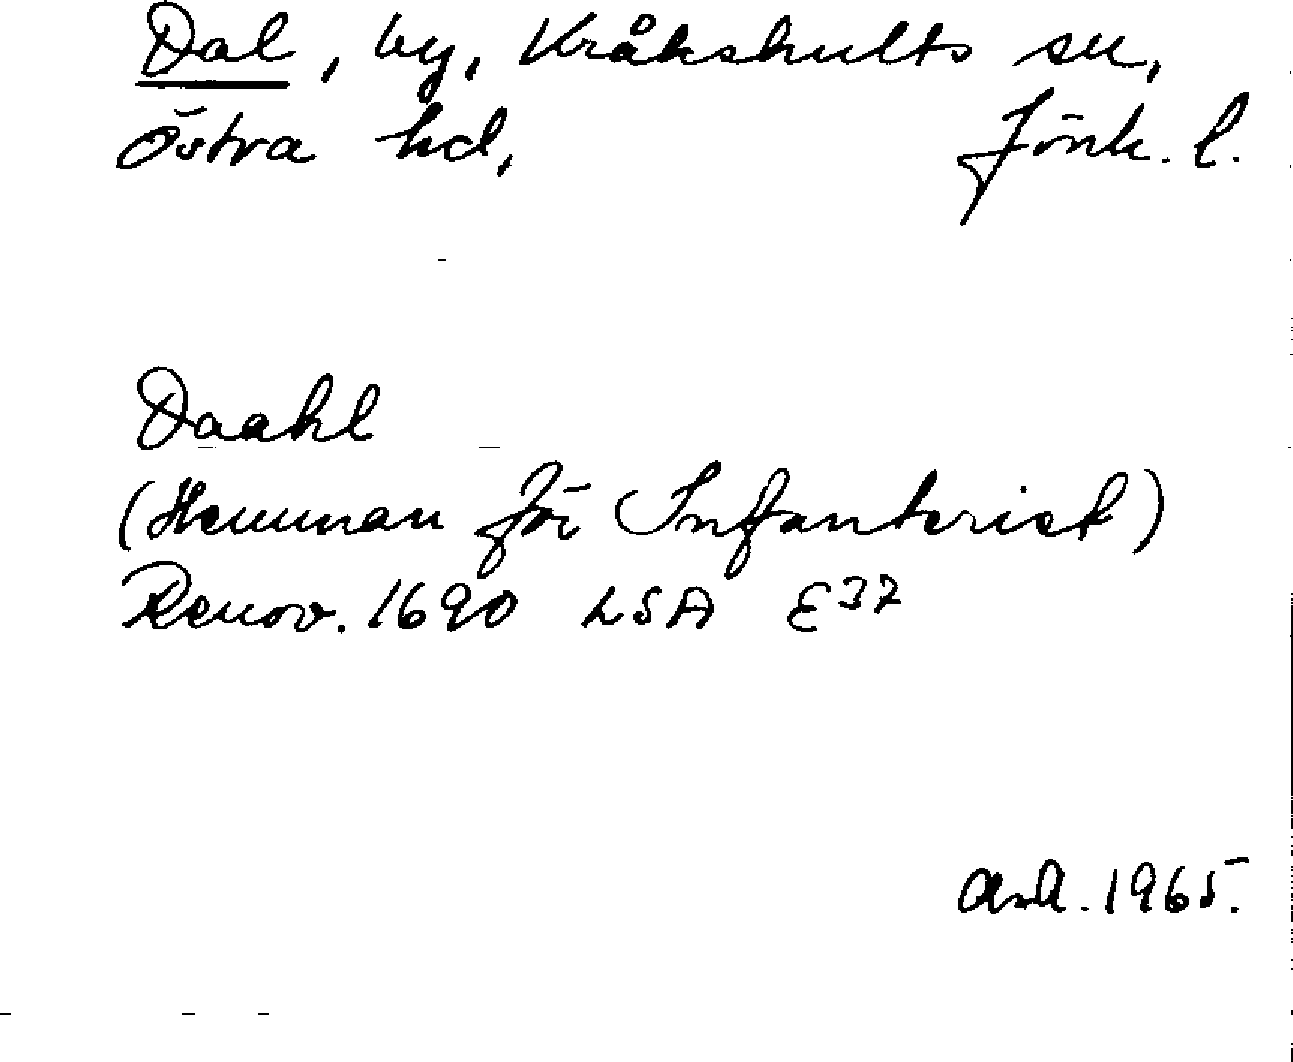 Dal, by, Kråkshults sn,
Östra hd, Jönk. l.
Daahl
(Hemman för Infanterist)
Renov. 1690 LSA E37
1965.